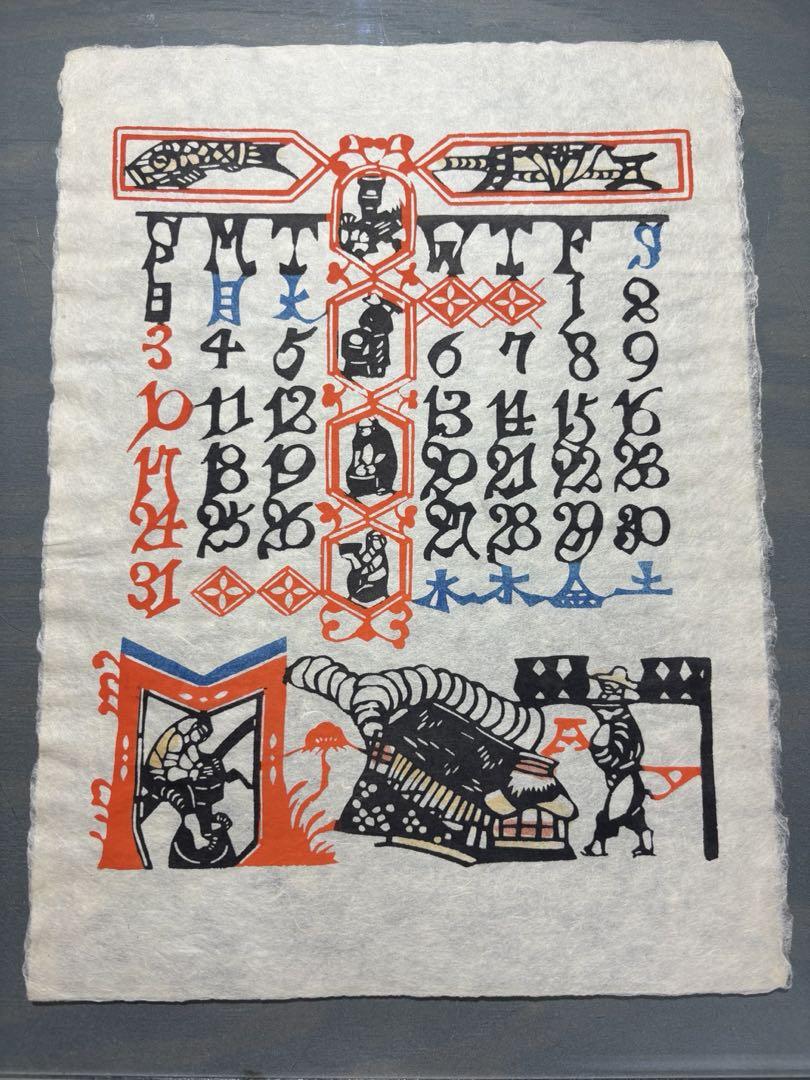 S M T W T F S
日 月 火 1 2
3 4 5 6 7 8 9
10 11 12 13 14 15 16
17 18 19 20 21 22 23
24 25 26 27 28 29 30
31 水 木 金 土
M A